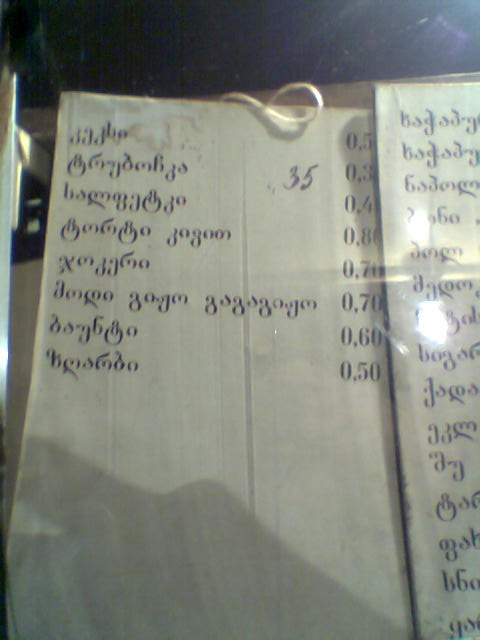 კექსი 0,5
ტრუბოჩკა 35 0,3
სალფეტკი 0,4
ტორტი კივით 0,80
ჯოკერი 0,70
მოდი გიჟო გაგაგიჟო 0,70
ბაუნტი 0,60
ზღარბი 0,50
ხაჭაპუ
ხაჭაპუ
ნაპოლ
სიგარ
ქადა
ეკლ
შუ
ტარ
ფახ
სნი